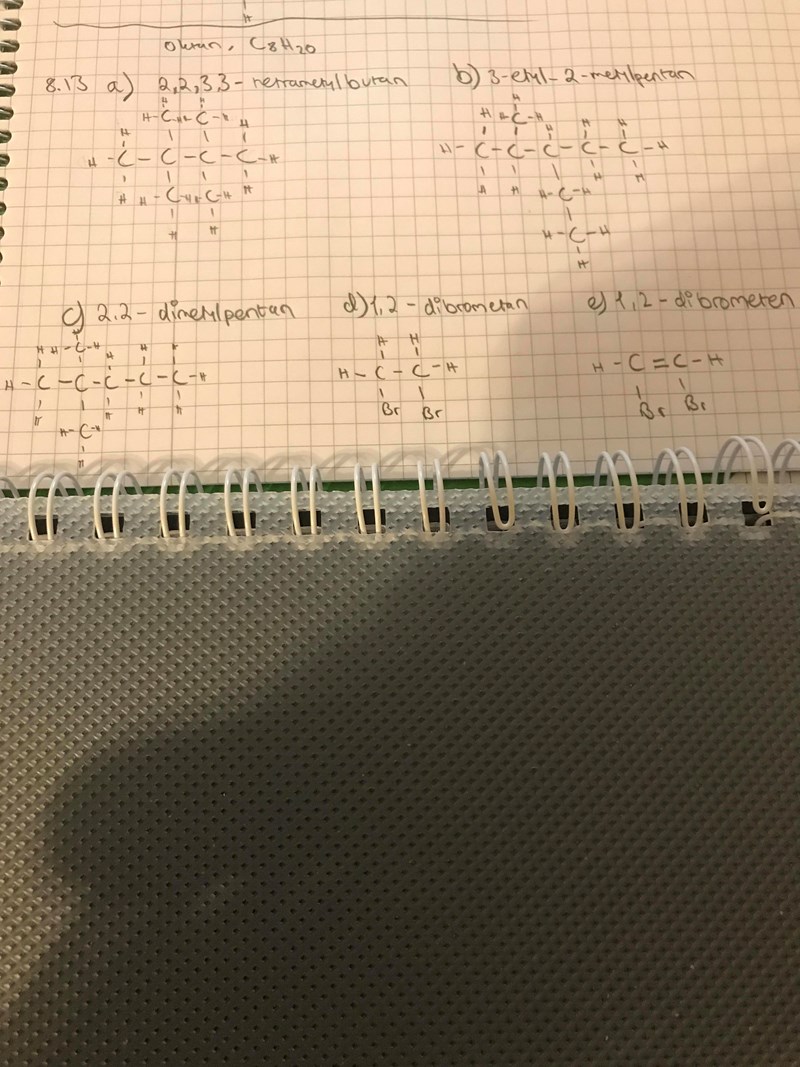 H
Oktan, C8H20
8.13 a) 2,2,3,3-tetrametylbutan b) 3-etyl-2-metylpentan
H H H
H-C H H C-H H H-C-H
H H H H H H
H-C-C-C-C-H H-C-C-C-C-C-H
H H-C-H H-C-H H H H H-C-H H H
H H H-C-H
H
c) 2,2-dimetylpentan d) 1,2-dibrometan e) 1,2-dibrometen
H H-C-H H H H H H
H-C-C-C-C-C-H H-C-C-H H-C=C-H
H H H H Br Br Br Br
H-C-H
H